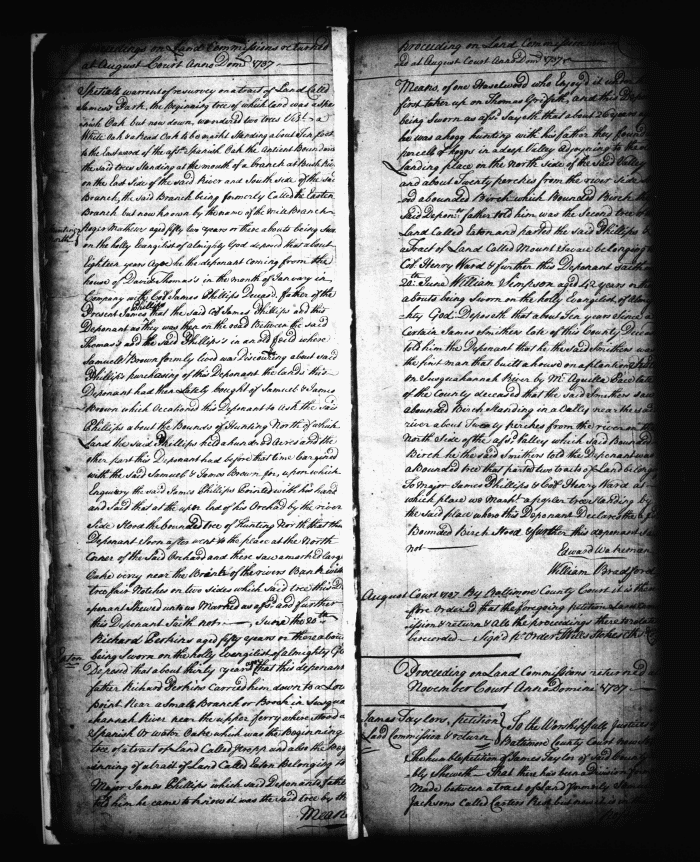 proceedings on Land Commissions returned
at August Court Anno Dom: 1737
Speciale warrent of resurvey on a tract of Land Called
James's Park, the beginning tree of which land was a Spa
nish Oak but now down, wee ordered two trees Vizt. a
White Oak & a Read Oak to be markt Standing about Ten foot
to the Eastward of the afsd. Spanish Oak the Antient Boundaries
the said trees Standing at the mouth of a branch at Bush River
on the East Side of the said River and South Side of the said
Branch, the said Branch being formerly Called the Easten
Branch but now known by the name of the Branch
Hunting
north
aged fifty two years or there abouts being Sworn
on the holy Evangilist of almighty God deposed that about
Eighteen years Agoe he the deponant coming from the
house of David Thomas's in the month of January in
Company with Col. James Phillips Deceasd. father of the
Present James Phillips that the said Col. James Phillips and this
Deponant as they was then on the road Between the said
Thomas's and the said Phillips's in an old field where
Samuell Brown formerly lived was Discoursing about said
Phillips purchasing of this Deponant the lands this
Deponant had then Lately bought of Samuel & James
Brown which Occationed this Deponant to ask the said
Phillips about the Bounds of Hunting North of which
Land the said Phillips held a hundred Acres and the
other part this Deponant had before that time bargened
with the said Samuel & James Brown for, upon which
Enquiery the said James Phillips Pointed with his hand
and Said that at the uper End of his Orchad by the river
Side Stood the bounded tree of Hunting North that this
Deponant Soon after went to the place at the North
Corner of the Said Orchad and there saw a marked large
Oake verry near the Brink of the rivers Bank with
tree fair Notches on two Sides which said tree this De
ponant Shewed unto us Marked as afsd. and further
this Deponant Saith not — June the 20th
Richard Perkins aged fifty years or there abouts
Eaton
being Sworn on the holly Evangilist of almighty God
Deposed that about thirty years ago that this deponant
father Richard Perkins Carried him down to a Low
point Near a Small Branch or Brook in Susque
hannah River near the upper ferry where Stood a
Spanish Or water Oake which was the Beginning
tree of a tract of Land Called and also the Beg
inning of a tract of Land Called Eaton Belonging to
Major James Phillips which said Deponants father
told him he came to know it was the said tree by the
Means
Proceeding on Land Commission
ed at August Court Anno Dom: 1737
Means of one Haselwood who Enjoyd it
first taken up on Thomas Griffith, and this Depo
being Sworn as afsd. Sayeth that about 26 years
he was a hogg hunting with his father they found
parcele of hoggs in a deep Valley adjoyning to the
Landing place on the North Side of the Said Valley
and about Twenty perches from the river side
a bounded Birch which Bounded Birch
Said Depont. father told him was the Second tree
Land Called Eaton and parted the said Phillips
a Tract of Land Called Mount Yoare belonging
Col. Henry Ward & further this Deponant Saith
20th: June William Simpson aged 42 years or
abouts being Sworn on the holly Evangilist of Almi
ghty God Deposeth that about Ten years Since
Certain James Smithers late of this County Deceas
told him the Deponant that he the said Smithers was
the first man that built a house on a plantation
on Susquahannah River by Mr. Aquella Paca late
of the County deceased that the said Smithers saw
a bounded Birch Standing in a Valley near the said
river about Twenty perches from the river on the
North Side of the afsd. Valley which said Bounded
Birch he the said Smithers told the Deponant was
a Bounded tree that parted two tracts of Land belonging
To Major James Phillips & Col. Henry Ward at
which place we Mark't a popler tree Standing by
the Said place where this Deponant Declares the
Bounded Birch Stood & further this deponant
not —
Edward Wakeman
William Bradford
August Court 1737 By Baltimore County Court it is there
fore Ordered that the foregoing petition Land Com
mission & return & All the proceedings thereto
be recorded Signd p Order Wills Stokes
Proceeding on Land Commissions returned
November Court Anno Domini 1737
James Taylors, petition
Land Commission & return
To the Worshipfull Justices
Baltimore County Court now
The humble petition of James Taylor of said County
bly sheweth That there has been a Division
made between a tract of Land formerly
Jacksons Called but now it is in the